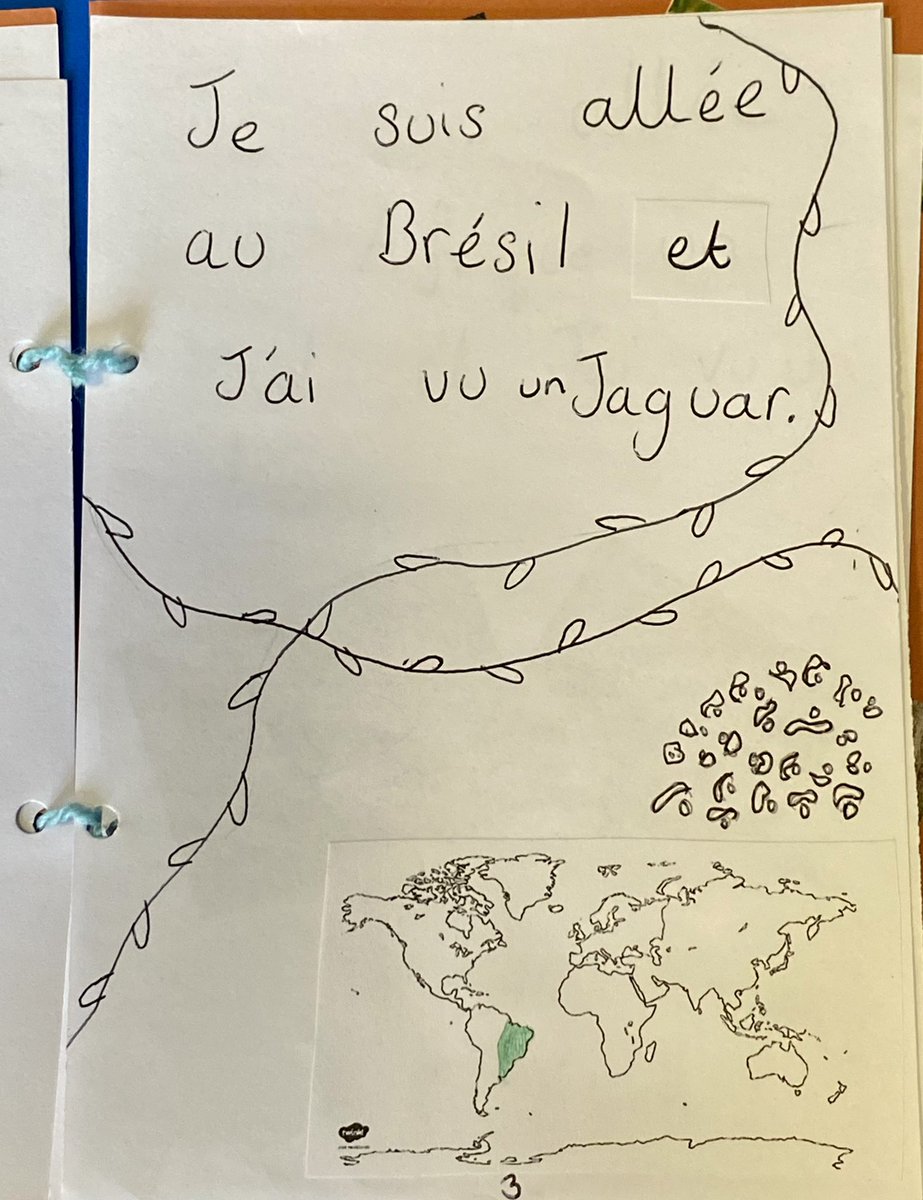 Je suis allée
au Brésil et
J'ai vu un Jaguar.
twinkl
3